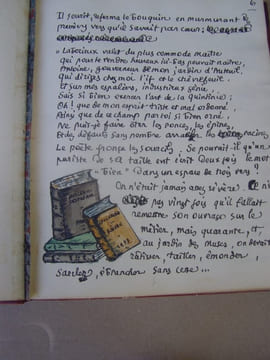 6
Il sourit, referme le bouquin en murmurant
vers qu'il savait par cœur :
« Laborieux valet du plus commode maître
Qui pour te rendre heureux ici-bas pouvait naître,
Antoine, gouverneur de mon jardin d'Auteuil,
Qui diriges chez moi l'if et le chèvrefeuil
Et sur mes espaliers, industrieux génie,
Sais si bien exercer l'art de la Quintinie ;
Oh ! que de mon esprit triste et mal ordonné,
Ainsi que de ce champ par toi si bien orné,
Ne puis-je faire ôter les ronces, les épines,
Et des défauts sans nombre arracher les racines
Le poète fronça les sourcils. Se pourrait-il qu'un
puriste de sa taille ait écrit deux fois le mot
« bien » dans un espace de trois vers ?
On n'était jamais assez sévère !
pas vingt fois qu'il fallait
remettre son ouvrage sur le
métier, mais quarante, et,
au jardin des muses, on devrait
ratisser, tailler, émonder,
sarcler, ébrancher sans cesse ...